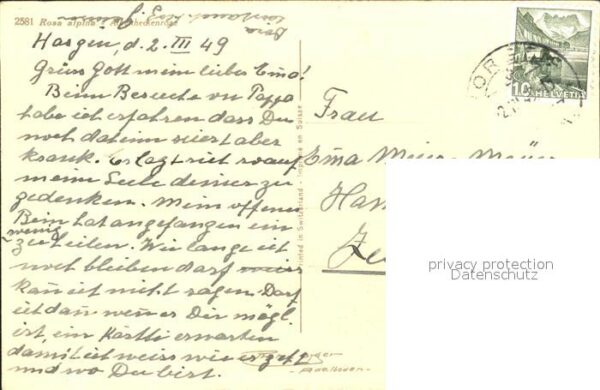 2581 Rosa alpina - Alpenheckenrose
Horgen, d. 2. III 49
Grüss Gott mein liebes Ema!
Beim Besuche von Pappa
habe ich erfahren dass Du
noch daheim seiest aber
krank. Es lagt mir so auf
meine Seele deiner zu
gedenken. Mein offenes
Bein hat angefangen ein
wenig
zu heilen. Wie lange ich
noch bleiben darf weiss
kan ich nicht sagen. Darf
ich dan wen es Dir mögl.
ist, ein Kärtli erwarten
damit ich weiss wie es geht
und wo Du bist.
Printed in Switzerland - Imprimé en Suisse
10 HELVETIA
HORGEN
Frau
Ema Meier-
privacy protection
Datenschutz
Adelboden